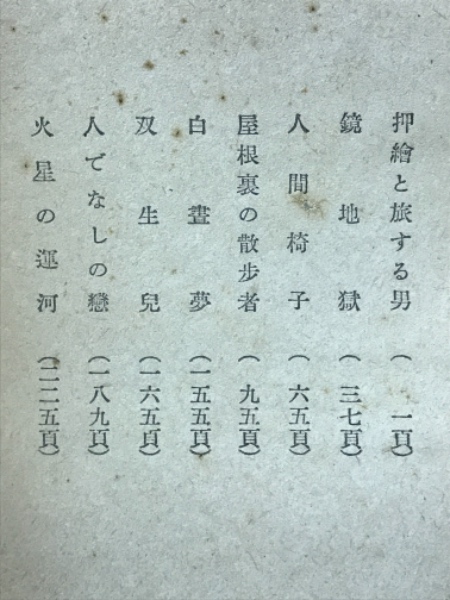 押繪と旅する男 (一頁)
鏡地獄 (三七頁)
人間椅子 (六五頁)
屋根裏の散歩者 (九五頁)
白晝夢 (一五五頁)
双生兒 (一六五頁)
人でなしの戀 (一八九頁)
火星の運河 (二二五頁)